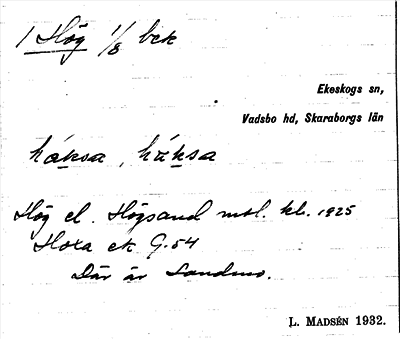 1 Hög 1/8 bck
Ekeskogs sn,
Vadsbo hd, Skaraborgs län
háksa, háksa
Hög el. Högsand mtl. kl. 1825
Hoxa ek G. 54
Där är Sandmo.
L. MADSÉN 1932.